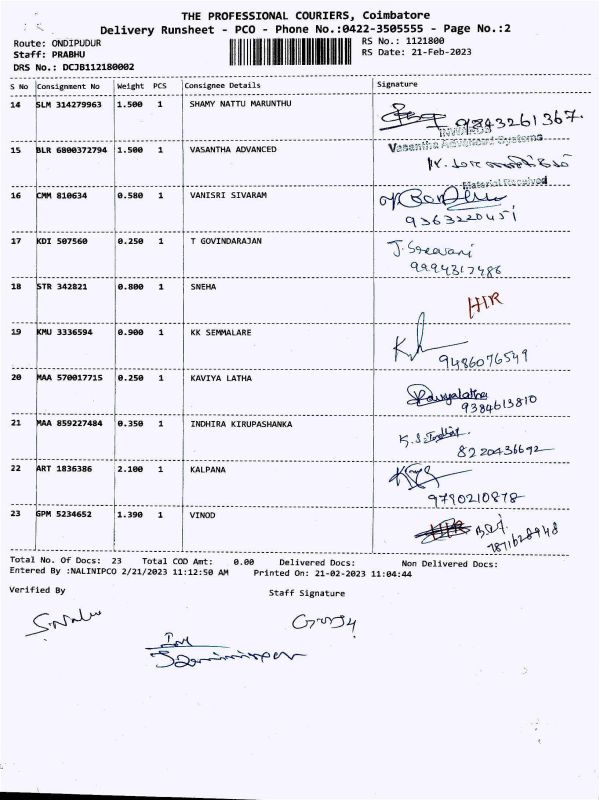 THE PROFESSIONAL COURIERS, Coimbatore
Delivery Runsheet - PCO - Phone No.:0422-3505555 - Page No.:2
Route: ONDIPUDUR RS No.: 1121800
Staff: PRABHU RS Date: 21-Feb-2023
DRS No.: DCJB112180002
S No Consignment No Weight PCS Consignee Details Signature
14 SLM 314279963 1.500 1 SHAMY NATTU MARUNTHU
9843261367.
Vasantha Advanced Systems
15 BLR 6800372794 1.500 1 VASANTHA ADVANCED
Material Received
16 CMM 810634 0.580 1 VANISRI SIVARAM
9363220451
17 KDI 507560 0.250 1 T GOVINDARAJAN J. Sreevani
9994317486
18 STR 342821 0.800 1 SNEHA
HIR
19 KMU 3336594 0.900 1 KK SEMMALARE
9486076549
20 MAA 570017715 0.250 1 KAVIYA LATHA
9384613810
21 MAA 859227484 0.350 1 INDHIRA KIRUPASHANKA
8220436692
22 ART 1836386 2.100 1 KALPANA
9790210878
23 GPM 5234652 1.390 1 VINOD
7871628948
Total No. Of Docs: 23 Total COD Amt: 0.00 Delivered Docs: Non Delivered Docs:
Entered By :NALINIPCO 2/21/2023 11:12:50 AM Printed On: 21-02-2023 11:04:44
Verified By Staff Signature